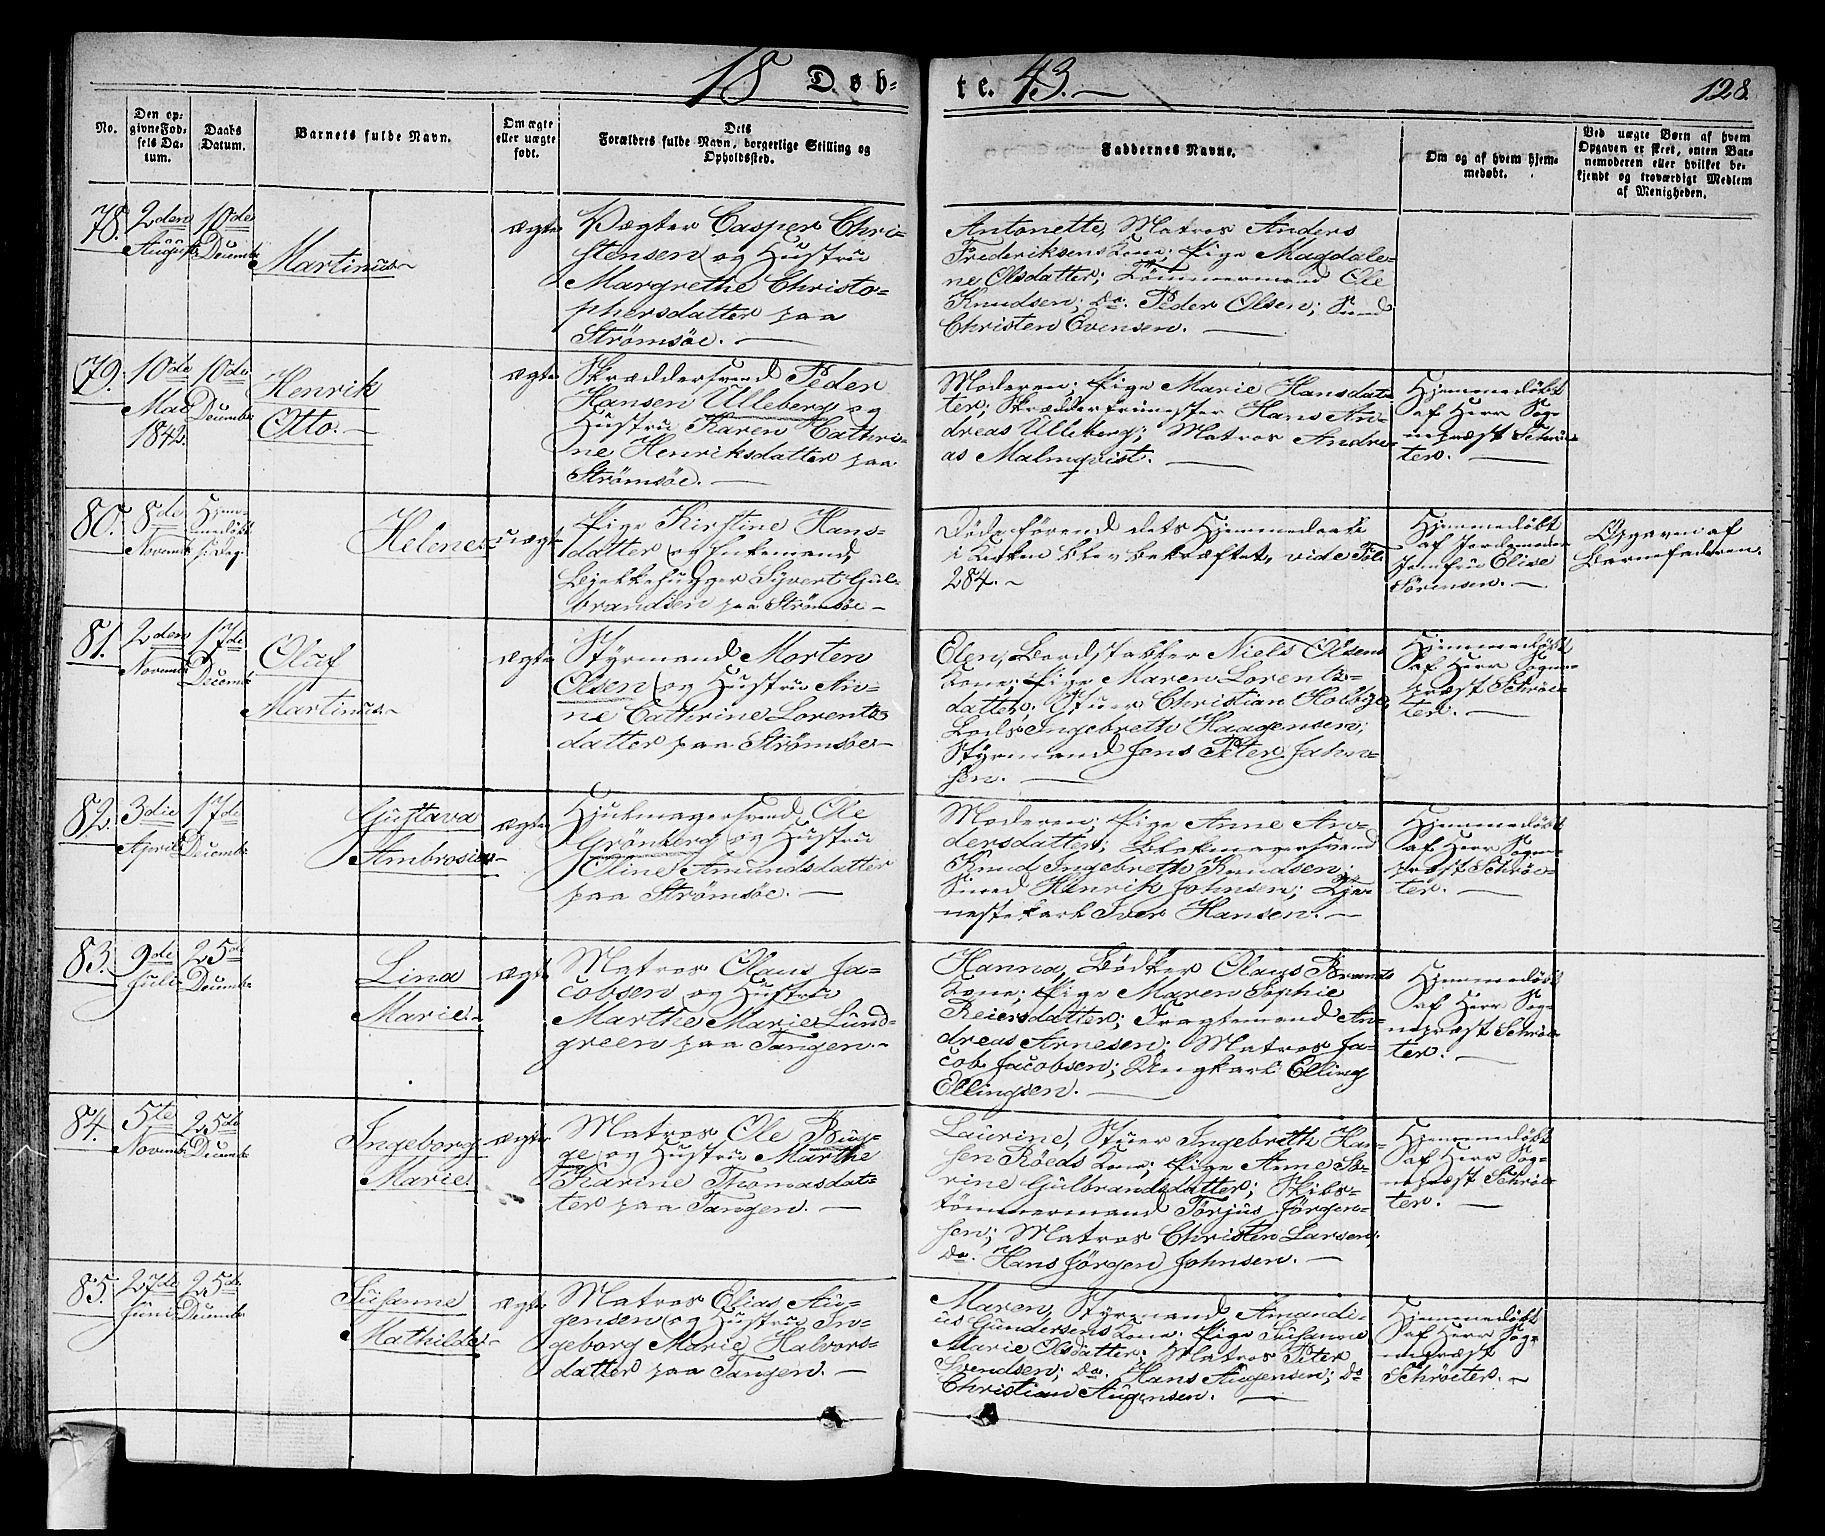 18 Døb-
te. 43.
128.
No.
Den op-
givne Fød-
sels Da-
tum.
Daabs
Datum.
Barnets fulde Navn.
Om ægte
eller uægte
født.
Dets
Forældres fulde Navn, borgerlige Stilling og
Opholdssted.
Faddernes Navne.
Om og af hvem hjem-
medøbt.
Ved uægte Børn af hvem
Opgaven er skeet, enten Bar-
nemoderen eller hvilket be-
kjendt og troværdigt Medlem
af Menigheden.
78.
2den
August
10de
Decembr
Martinus.
ægte
Vægter Casper Chri-
stensen og Hustru
Margrethe Christo-
phersdatter paa
Strømsøe.
Antonette, Matros Anders
Frederiksens Kone; Pige Magdale-
ne Olsdatter; Tømmermand Ole
Knudsen; do. Peder Olsen;
Christen Evensen.
79.
10de
Mai
1842.
10de
Decembr
Henrik
Otto.
ægte
Skræddersvend Peder
Hansen Ulleberg og
Hustru Karen Cathri-
ne Henriksdatter paa
Strømsøe.
Moderen; Pige Marie Hansdat-
ter; Skræddermester Hans An-
dreas Ulleberg; Matros Andre-
as Malmqvist.
Hjemmedøbt
af Herr Sog-
nepræst Schrøe-
ter.
80.
8de
Novembr
Hjem-
medøbt
Helene.
uægte
Pige Kirstine Hans-
datter og Enkemand,
Bjelkehugger Syvert Gul-
brandsen paa Strømsøe
Døde førend dets Hjemmedaab
i Kirken blev bekræftet, vide Fol.
284.
Hjemmedøbt
af Jordemoder
Jomfru Elise
Sørensen.
Opgaven af
Barnefaderen.
81.
2den
Novembr
17de
Decembr
Oluf
Martinus.
ægte
Styrmand Morten
Olsen og Hustru An-
ne Cathrine Lorents-
datter paa Strømsøe
Elen, Bordstabler Niels Olsens
Kone; Pige Maren Lorents-
datter; Stuer Christian Holbye,
Lods Ingebreth Haagensen;
Styrmand Jens Peter Jahn-
sen.
Hjemmedøbt
af Herr Sogne-
præst Schrøe-
ter.
82.
3die
April
17de
Decembr
Gustava
Ambrosia.
ægte
Hjulmagersvend Ole
Grønberg og Hustru
Oline Amundsdatter
paa Strømsøe.
Moderen; Pige Anne An-
dersdatter; Blokmagersvend
Knud Ingebreth Knudsen;
Svend Henrik Johnsen; Tje-
nestekarl Iver Hansen.
Hjemmedøbt
af Herr Sogne-
præst Schrøe-
ter.
83.
9de
Juli
25de
Decembr
Lina
Marie.
ægte
Matros Olaus Ja-
cobsen og Hustru
Marthe Marie Lund-
green paa Tangen.
Hanna, Bødker Olaus Brandts
Kone; Pige Maren Sophie
Reiersdatter; Fragtemand An-
dreas Arnesen; Matros Ja-
cob Jacobsen; Ungkarl Elling
Ellingsen.
Hjemmedøbt
af Herr Sog-
nepræst Schrøe-
ter.
84.
5te
Novembr
25de
Decembr
Ingeborg
Marie.
ægte
Matros Ole Bug-
ge og Hustru Marthe
Karine Thomasdat-
ter paa Tangen.
Laurine, Stuer Ingebreth Han-
sen Røeds Kone; Pige Anne Sø-
rine Gulbrandsdatter; Skibs-
tømmermand Torjus Jørgen-
sen; Matros Christen Larsen;
do. Hans Jørgen Johnsen.
Hjemmedøbt
af Herr Sog-
nepræst Schrøe-
ter.
85.
27de
Juni
25de
Decembr
Susanne
Mathilde.
ægte
Matros Elias Au-
gensen og Hustru In-
geborg Marie Halvors-
datter paa Tangen.
Maren, Styrmand Amandi-
us Gundersens Kone; Pige Susanne
Marie Olsdatter; Matros Peter
Svendsen; do. Hans Augensen; do
Christian Augensen.
Hjemmedøbt
af Herr Sog-
nepræst
Schrøeter.